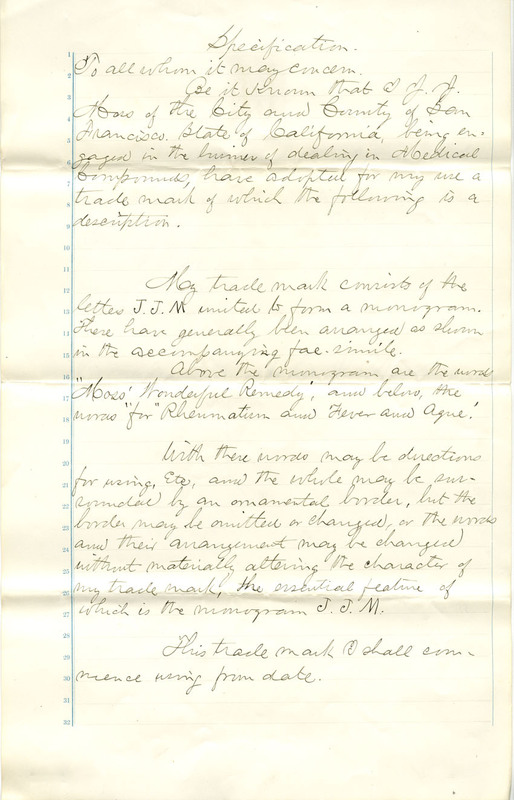 Specification.
1
To all whom it may concern.
2
Be it Known that I J. J.
3
Moss of the City and County of San
4
Francisco. State of California, being en-
5
gaged in the business of dealing in Medical
6
Compounds, have adopted for my use a
7
trade mark of which the following is a
8
description.
9
10
11
My trade mark consists of the
12
letters J. J. M united to form a monogram.
13
These have generally been arranged as shown
14
in the accompanying fac-simile.
15
Above the monogram are the words
16
"Moss' Wonderful Remedy", and below, the
17
words "for Rheumatism and Fever and Ague."
18
19
With these words may be directions
20
for using, Etc, and the whole may be sur-
21
rounded by an ornamental border, but the
22
border may be omitted or changed, or the words
23
and their arrangement may be changed
24
without materially altering the character of
25
my trade mark, the essential feature of
26
which is the monogram J. J. M.
27
28
This trade mark I shall com-
29
mence using from date.
30
31
32